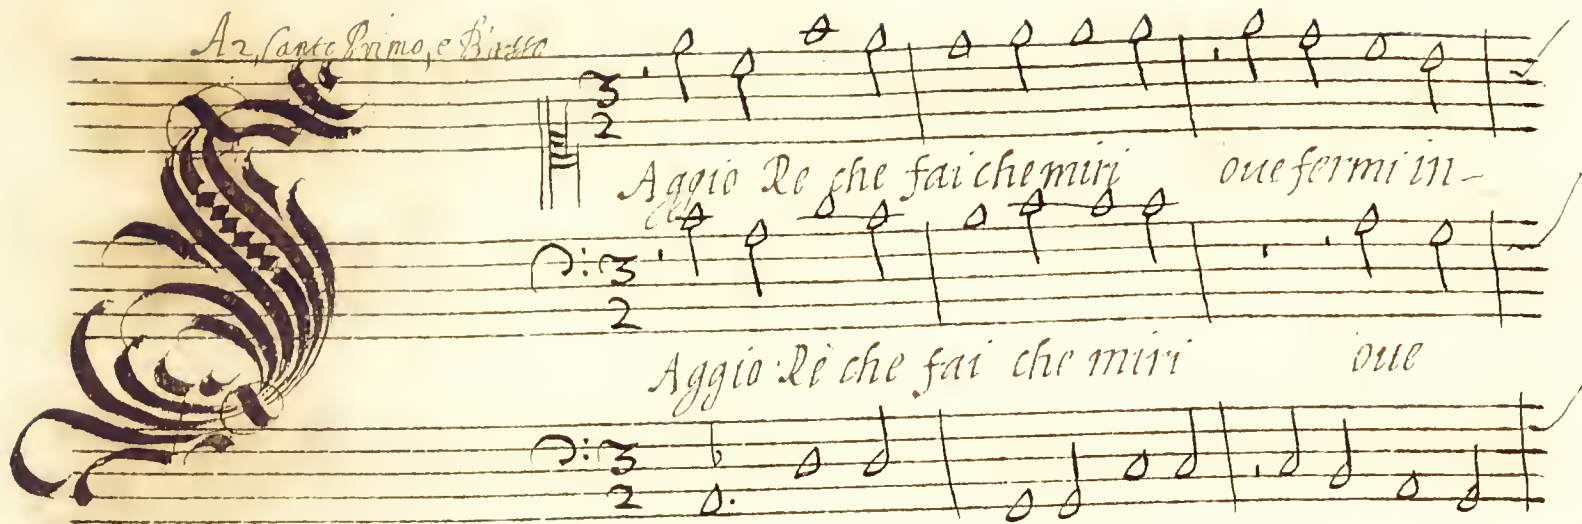 A 2, Canto Primo, e Basso
3
2
S
Aggio Re che fai che miri oue fermi in-
3
2
Aggio Rè che fai che miri oue
3
2